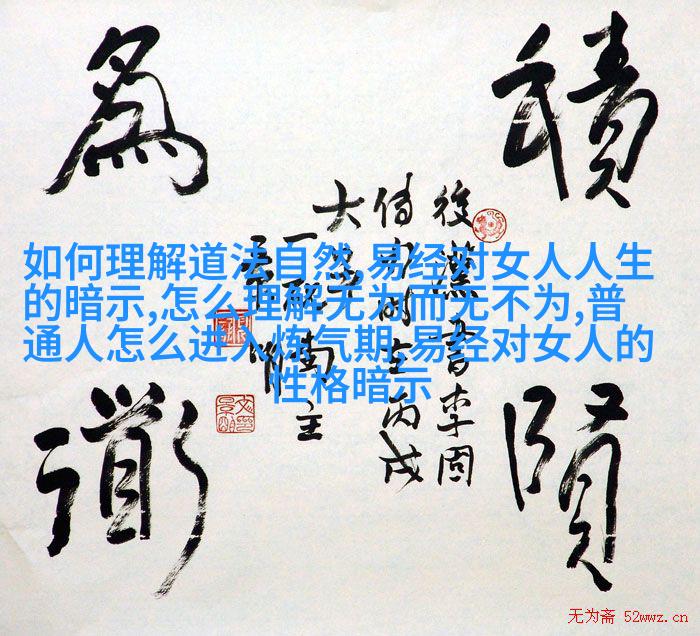 積賢
為道
後漢書李固
如何理解道法自然,易经对女人人生
的暗示,怎么理解无为而无不为,普
通人怎么进入炼气期,易经对女人的
性格暗示
无为斋 52wwz.cn